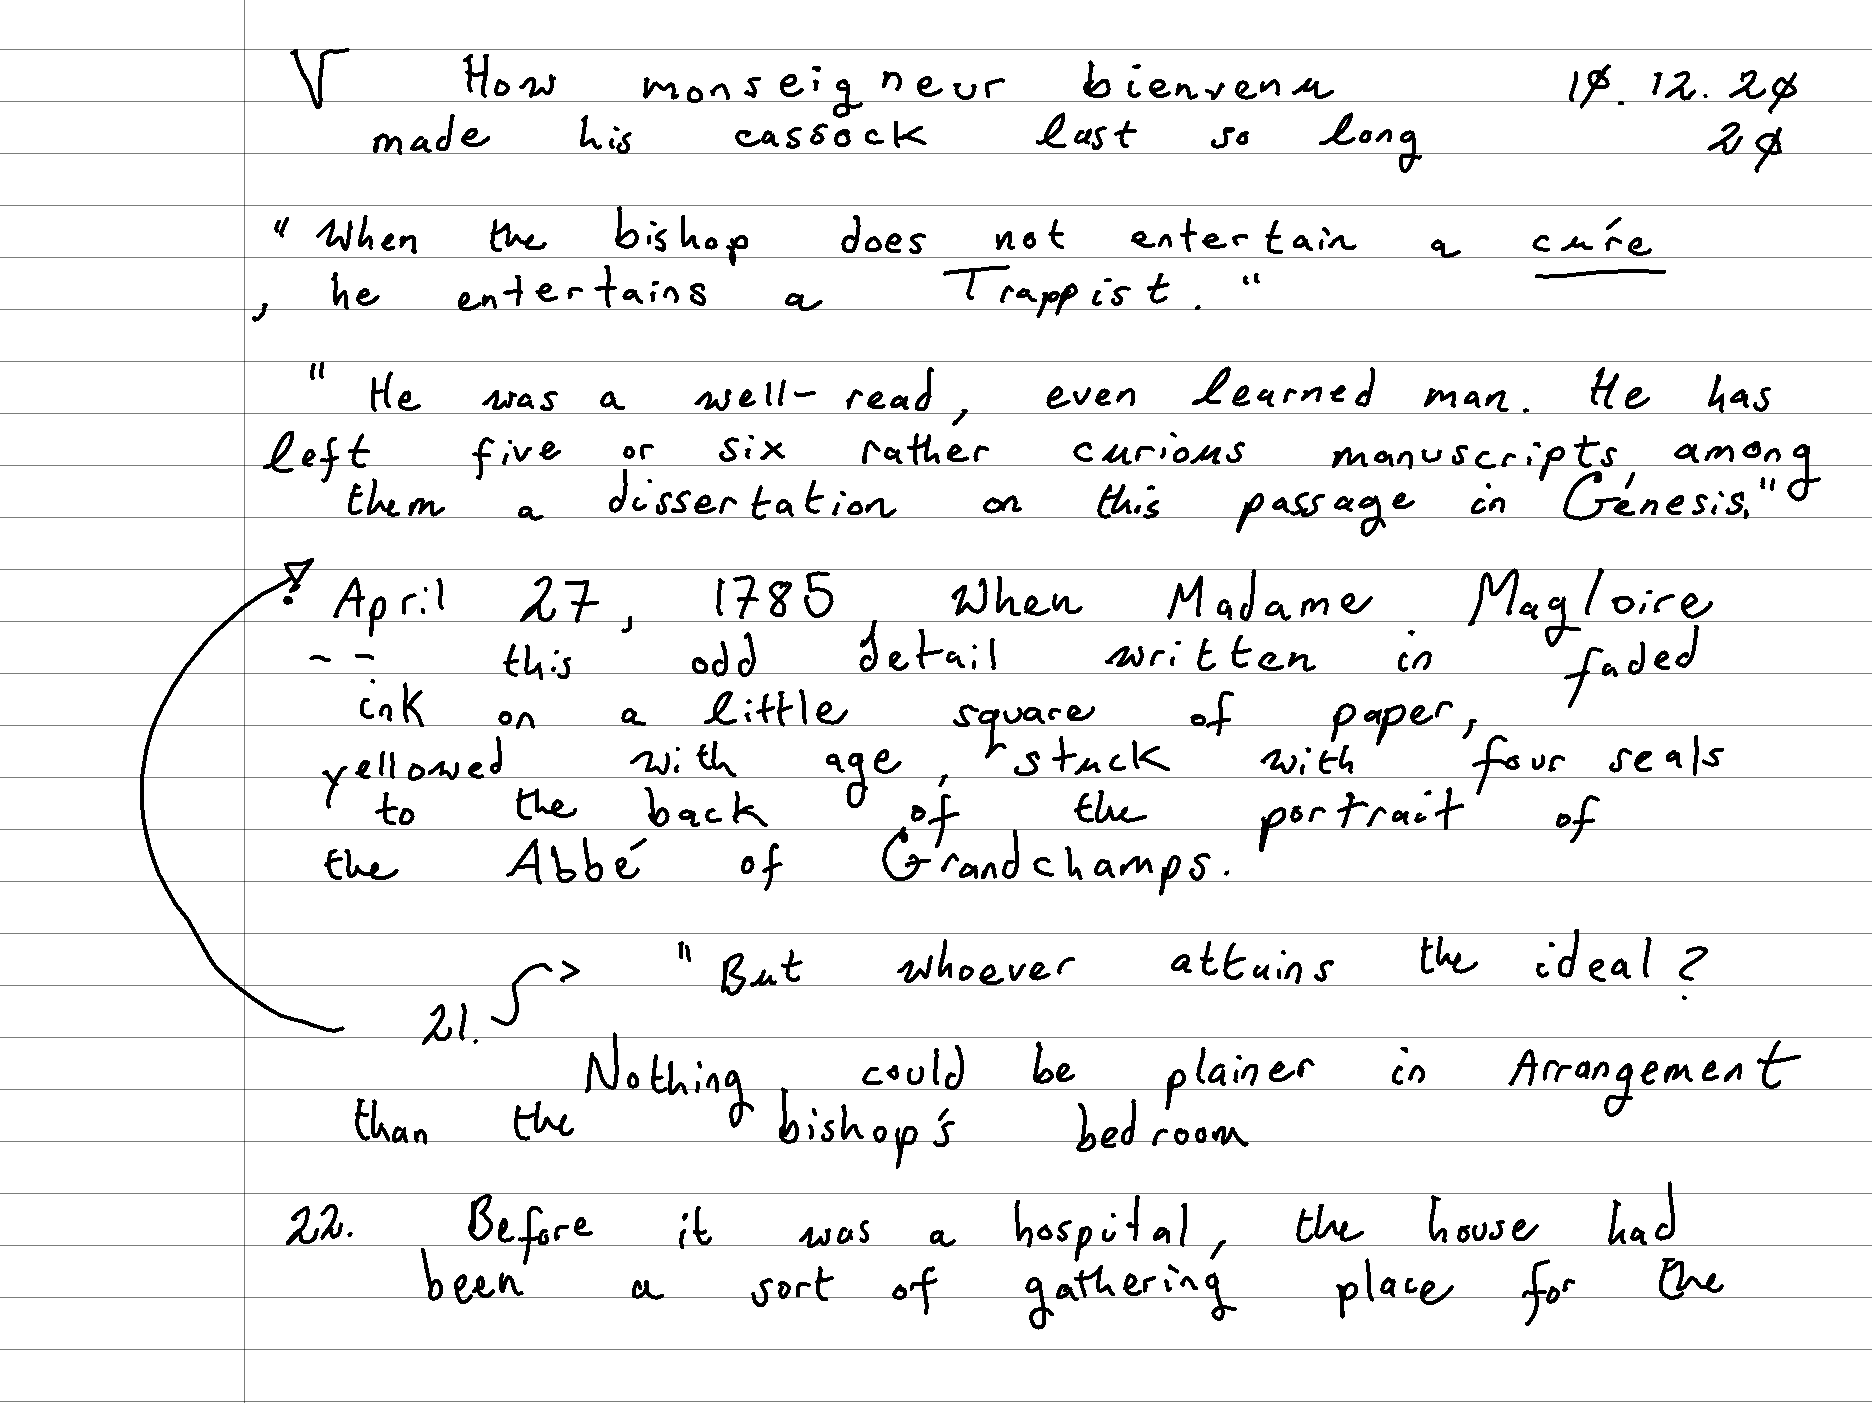 V How monseigneur bienvenu 10.12.20
made his cassock last so long 20
"When the bishop does not entertain a curé
, he entertains a Trappist."
"He was a well-read, even learned man. He has
left five or six rather curious manuscripts, among
them a dissertation on this passage in Génesis."
April 27, 1785, When Madame Magloire
-- this odd detail written in faded
ink on a little square of paper,
yellowed with age, stuck with four seals
to the back of the portrait of
the Abbé of Grandchamps.
"But whoever attains the ideal?
21.
Nothing could be plainer in Arrangement
than the bishop's bedroom
22. Before it was a hospital, the house had
been a sort of gathering place for the